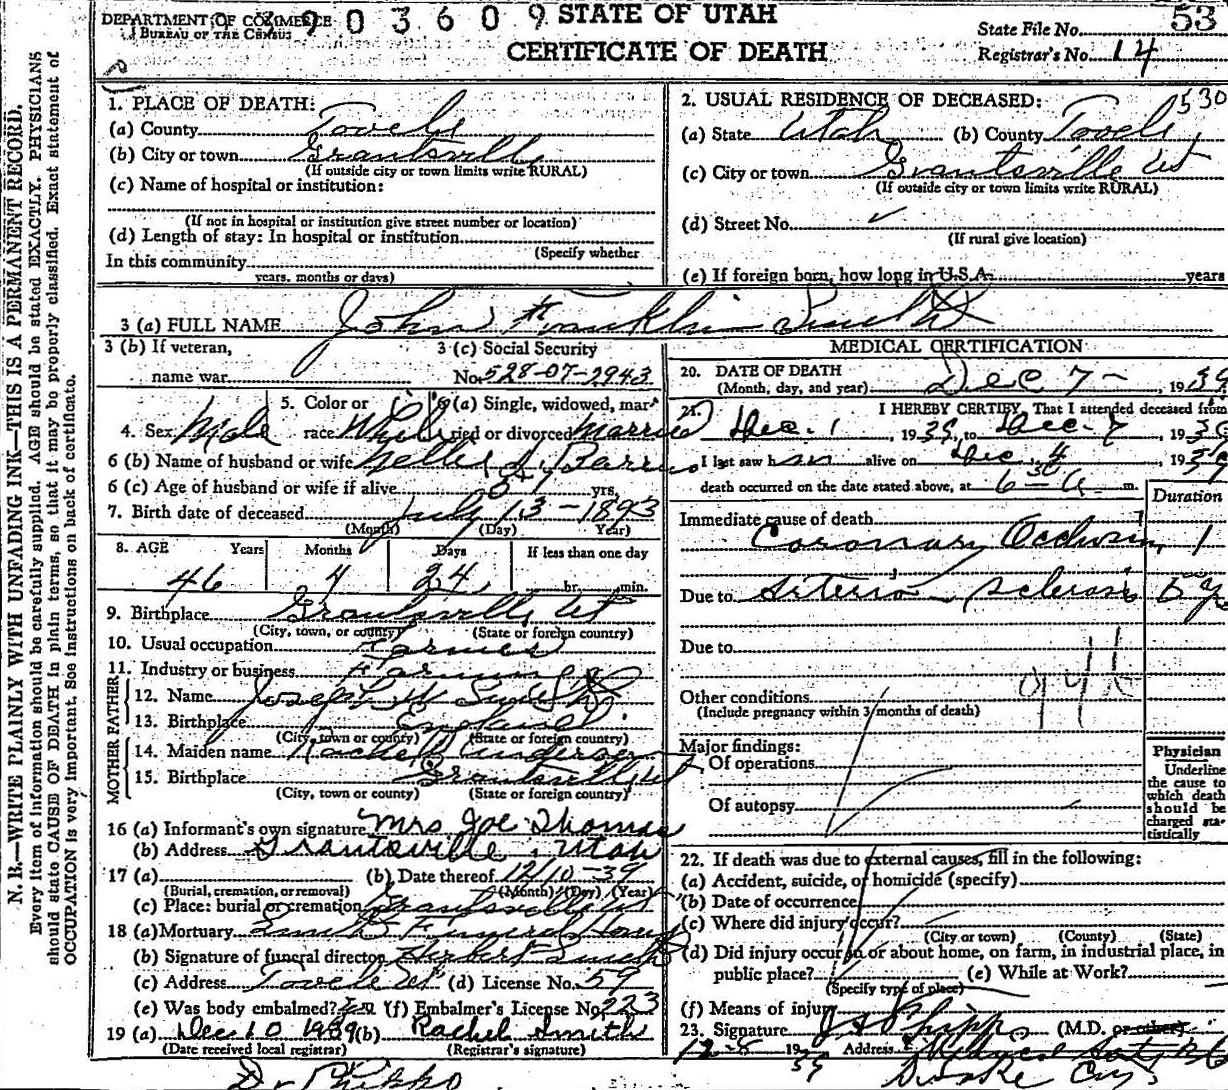 DEPARTMENT OF COMMERCE
BUREAU OF THE CENSUS
903609
STATE OF UTAH
CERTIFICATE OF DEATH
State File No. 53
Registrar's No. 14
N. B.—WRITE PLAINLY WITH UNFADING INK—THIS IS A PERMANENT RECORD.
Every item of information should be carefully supplied. AGE should be stated EXACTLY. PHYSICIANS
should state CAUSE OF DEATH in plain terms, so that it may be properly classified. Exact statement of
OCCUPATION is very important. See instructions on back of certificate.
1. PLACE OF DEATH:
(a) County Tooele
(b) City or town Grantsville
(If outside city or town limits write RURAL)
(c) Name of hospital or institution:
(If not in hospital or institution give street number or location)
(d) Length of stay: In hospital or institution
(Specify whether
In this community
years, months or days)
2. USUAL RESIDENCE OF DECEASED: 530
(a) State Utah (b) County Tooele
(c) City or town Grantsville Ut
(If outside city or town limits write RURAL)
(d) Street No.
(If rural give location)
(e) If foreign born, how long in U.S.A. years
3 (a) FULL NAME John Franklin Smith
3 (b) If veteran,
name war
3 (c) Social Security
No. 528-07-2943
4. Sex Male
5. Color or
race White
6 (a) Single, widowed, mar-
ried or divorced Married
6 (b) Name of husband or wife
6 (c) Age of husband or wife if alive yrs.
7. Birth date of deceased July 13 - 1893
(Month) (Day) (Year)
8. AGE Years Months Days If less than one day
46 4 24 hr. min.
9. Birthplace Grantsville Ut
(City, town, or county) (State or foreign country)
10. Usual occupation Farmer
11. Industry or business Farming
FATHER
12. Name Joseph W Smith
13. Birthplace England
(City, town or county) (State or foreign country)
MOTHER
14. Maiden name Rachel Anderson
15. Birthplace Grantsville Ut
(City, town or county) (State or foreign country)
16 (a) Informant's own signature Mrs Joe Thomas
(b) Address Grantsville, Utah
17 (a) (b) Date thereof 12/10-39
(Burial, cremation, or removal) (Month) (Day) (Year)
(c) Place: burial or cremation Grantsville Ut
18 (a) Mortuary Smith Funeral Home
(b) Signature of funeral director Herbert Smith
(c) Address Tooele Ut (d) License No. 59
(e) Was body embalmed? (f) Embalmer's License No. 223
19 (a) Dec 10 1939 (b) Rachel Smith
(Date received local registrar) (Registrar's signature)
Dr Phipps
MEDICAL CERTIFICATION
20. DATE OF DEATH
(Month, day, and year) Dec 7 - , 1939
21. I HEREBY CERTIFY, That I attended deceased from
Dec. 1, 1939, to Dec. 7, 1939
I last saw him alive on Dec 4, 1939
death occurred on the date stated above, at 6 30 a m.
Duration
Immediate cause of death
Coronary Occlusion 1
Due to Arterio Sclerosis 5
Due to
Other conditions
(Include pregnancy within 3 months of death)
94
Major findings:
Of operations
Of autopsy
Physician
Underline
the cause to
which death
should be
charged sta-
tistically
22. If death was due to external causes, fill in the following:
(a) Accident, suicide, or homicide (specify)
(b) Date of occurrence
(c) Where did injury occur?
(City or town) (County) (State)
(d) Did injury occur in or about home, on farm, in industrial place, in
public place? (e) While at Work?
(Specify type of place)
(f) Means of injury
23. Signature Phipps (M.D. or other)
12-8 1939 Address